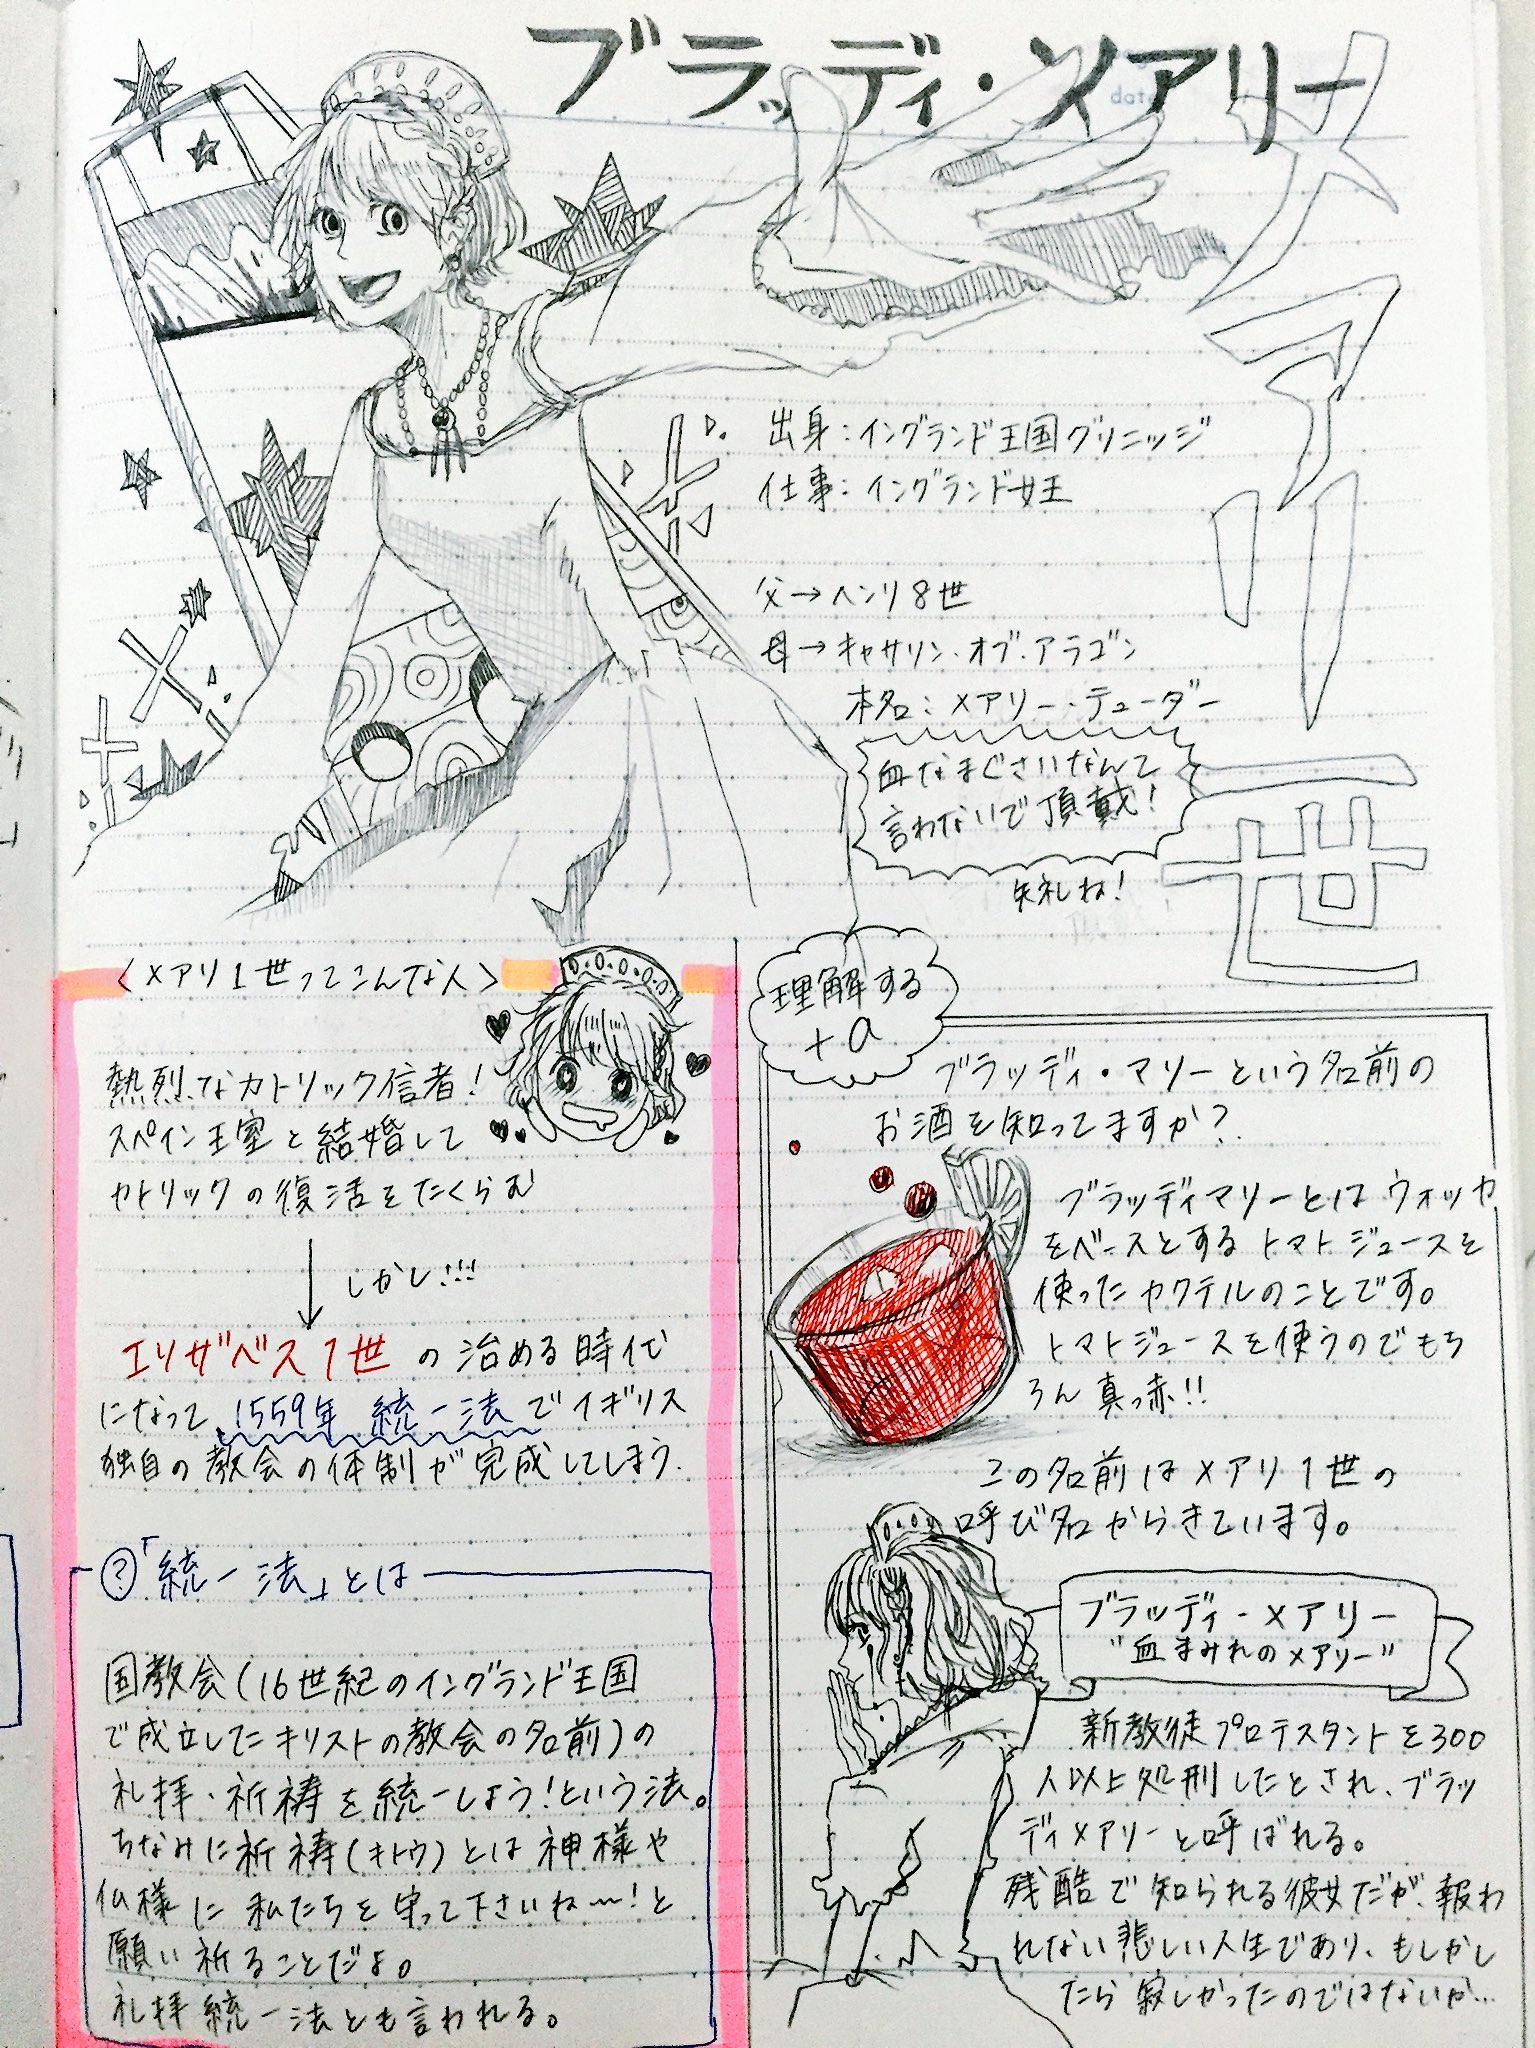 ブラッディ・メアリー
date
メアリ1世
出身：イングランド王国グリニッジ
仕事：イングランド女王
父→ヘンリ8世
母→キャサリン・オブ・アラゴン
本名：メアリー・テューダー
血なまぐさいなんて
言わないで頂戴！
失礼ね！
〈メアリ1世ってこんな人〉
熱烈なカトリック信者！
スペイン王室と結婚して
カトリックの復活をたくらむ
しかし!!!
エリザベス1世の治める時代
になって1559年 統一法でイギリス
独自の教会の体制が完成してしまう.
?「統一法」とは
国教会(16世紀のイングランド王国
で成立したキリストの教会の名前)の
礼拝・祈祷を統一しよう！という法。
ちなみに祈祷(キトウ)とは神様や
仏様に私たちを守って下さいね〜！と
願い祈ることだよ。
礼拝統一法とも言われる。
理解する
+α
ブラッディ・マリーという名前の
お酒を知ってますか？
ブラッディマリーとはウォッカ
をベースとするトマトジュースを
使ったカクテルのことです。
トマトジュースを使うのでもち
ろん真っ赤!!
この名前はメアリ1世の
呼び名からきています。
ブラッディ・メアリー
"血まみれのメアリー"
新教徒プロテスタントを300
人以上処刑したとされ、ブラッ
ディメアリーと呼ばれる。
残酷で知られる彼女だが、報わ
れない悲しい人生であり、もしかし
たら寂しかったのではないか…